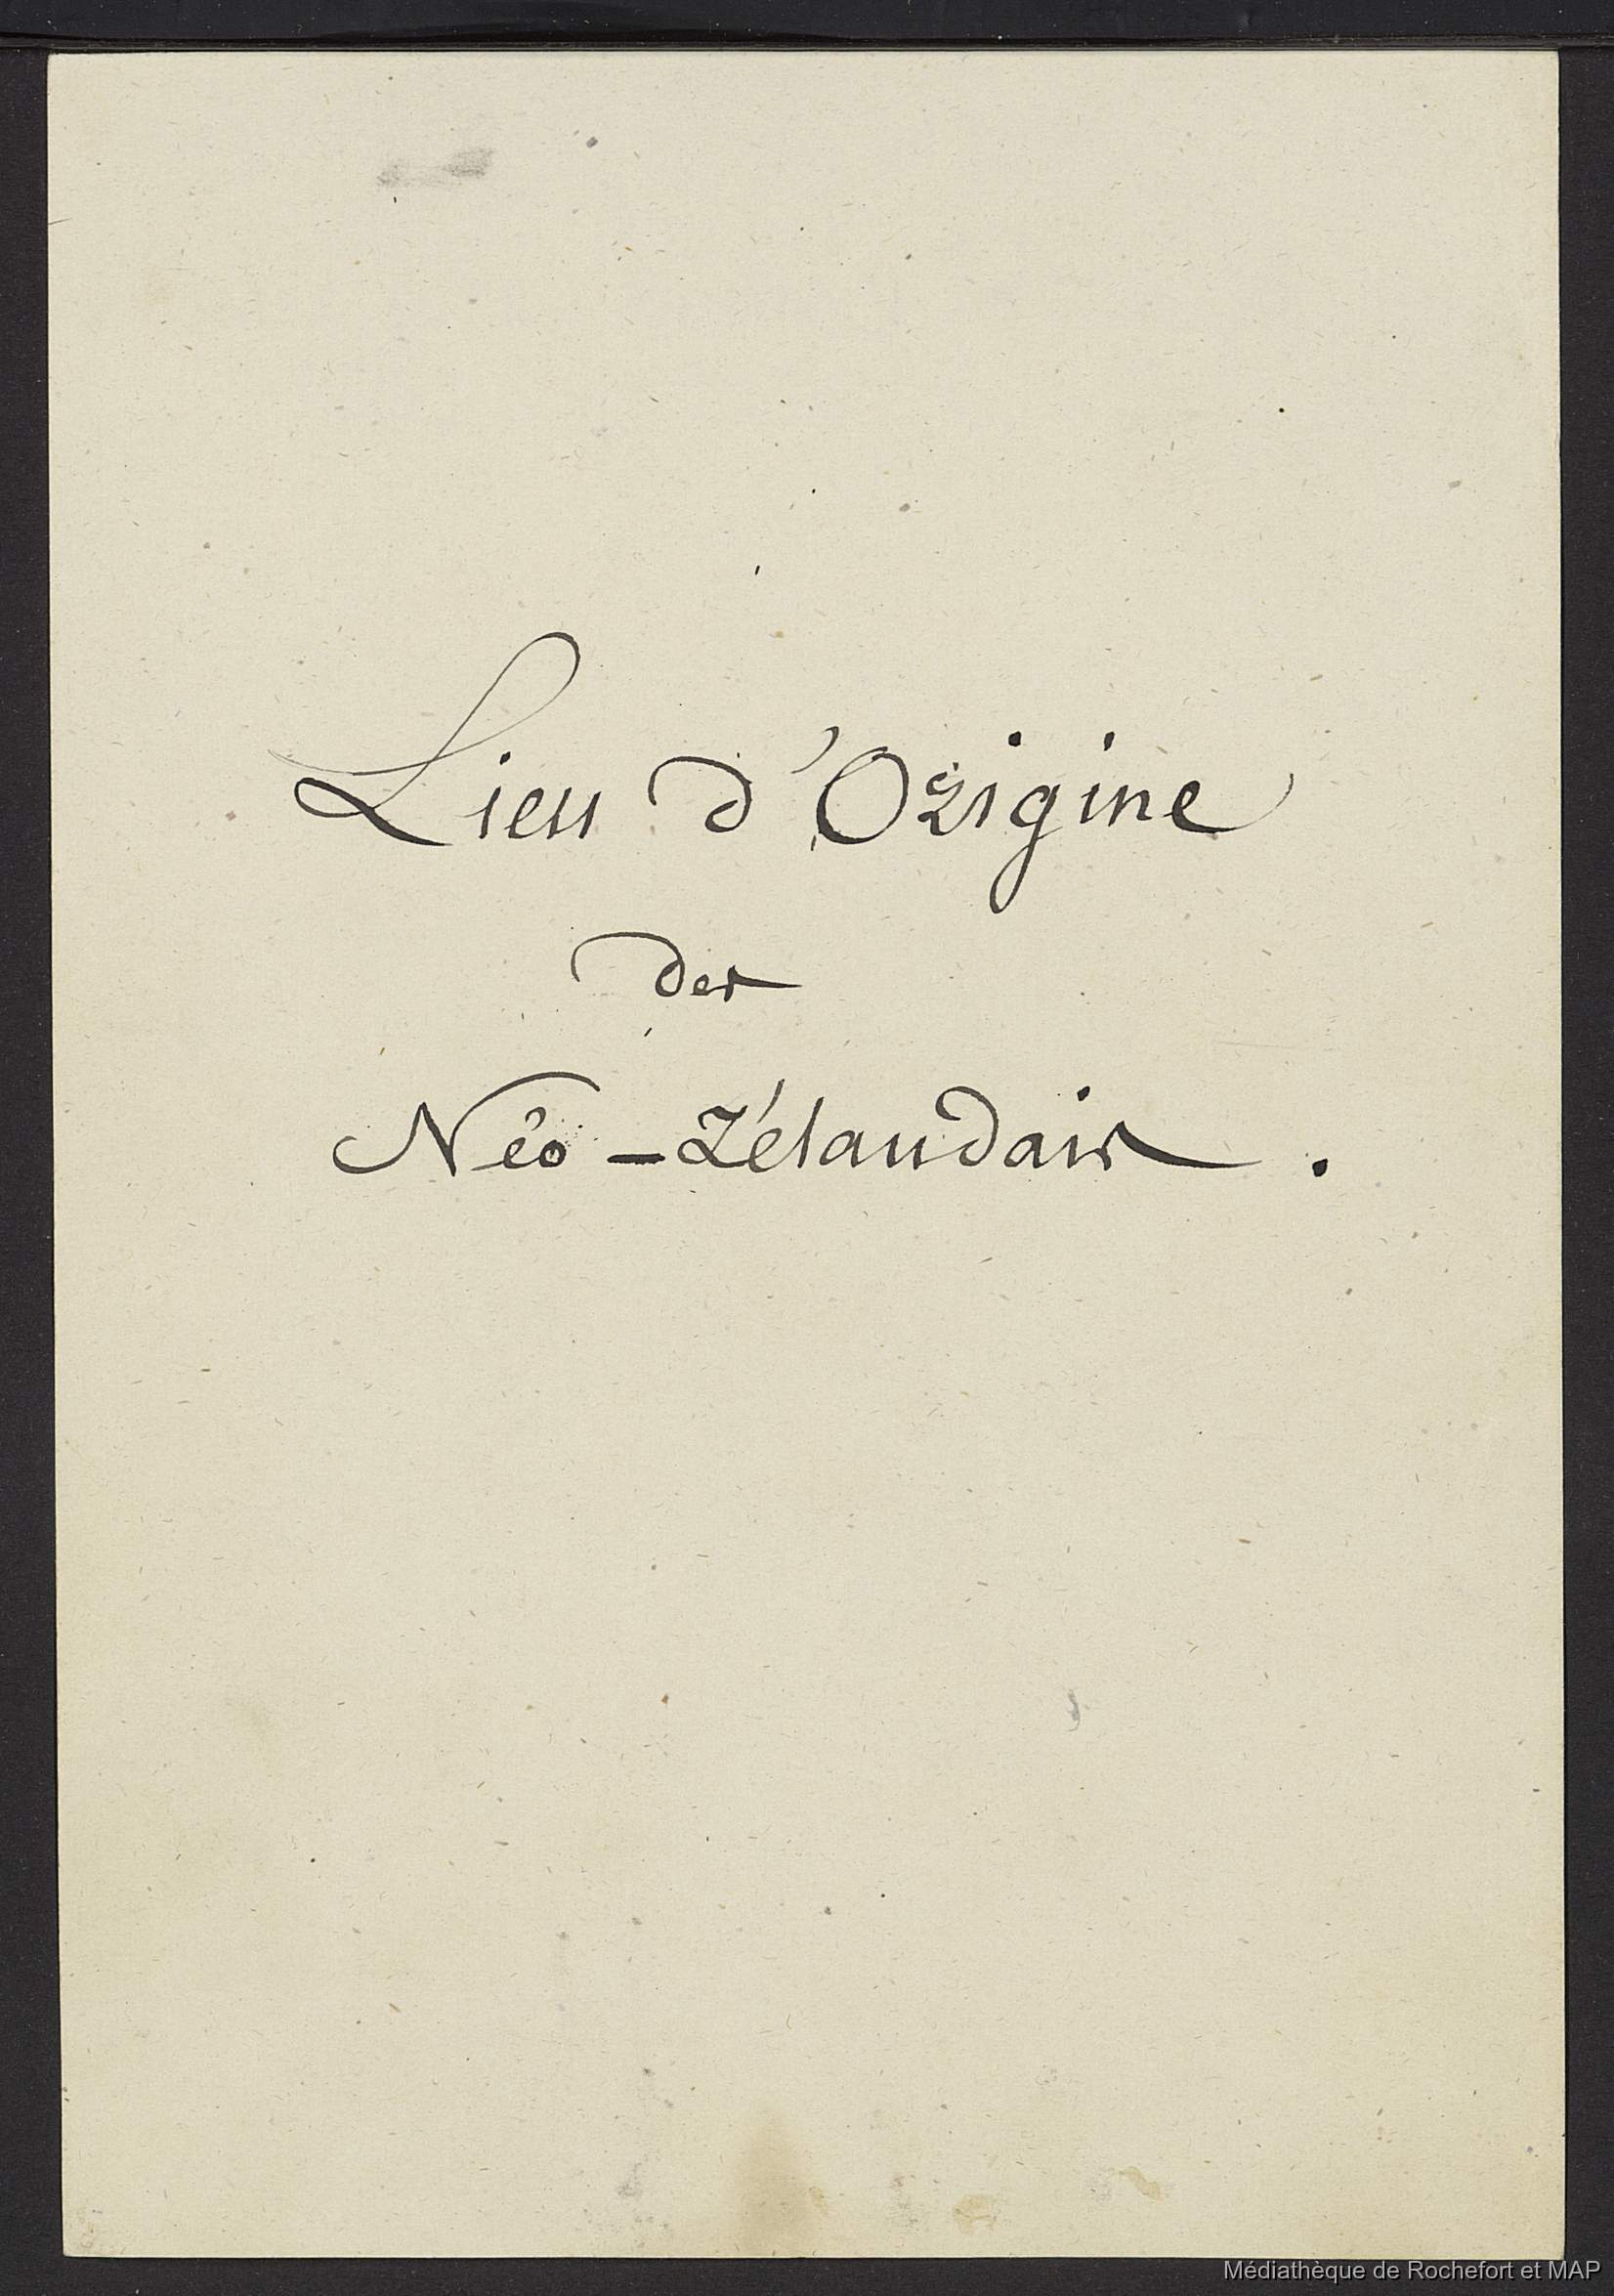 Lieu d'Origine
des
Néo-Zélandais.
Médiathèque de Rochefort et MAP